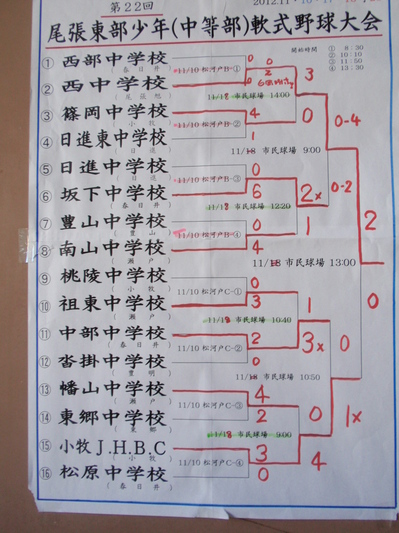 第22回
2012.11.
尾張東部少年(中等部)軟式野球大会
開始時間
① 8:30
② 10:10
③ 11:50
④ 13:30
① 西部中学校
(春日井)
0
11/10 松河戸B-①
② 西中学校
(尾張旭)
0 2
3
11/18 市民球場 14:00
③ 篠岡中学校
(小牧)
4
11/10 松河戸B-②
0
④ 日進東中学校
(日進)
1
0-4
11/18 市民球場 9:00
⑤ 日進中学校
(日進)
0
11/10 松河戸B-③
0-2
⑥ 坂下中学校
(春日井)
6
2x
11/18 市民球場 12:20
⑦ 豊山中学校
(豊山)
0
11/10 松河戸B-④
1
2
⑧ 南山中学校
(瀬戸)
4
11/18 市民球場 13:00
⑨ 桃陵中学校
(小牧)
0
11/10 松河戸C-①
0
⑩ 祖東中学校
(瀬戸)
3
1
11/18 市民球場 10:40
⑪ 中部中学校
(春日井)
2
11/10 松河戸C-②
3x
0
⑫ 沓掛中学校
(豊明)
0
11/18 市民球場 10:50
⑬ 幡山中学校
(瀬戸)
4
11/10 松河戸C-③
0
1x
⑭ 東郷中学校
(東郷)
2
11/18 市民球場 9:00
⑮ 小牧J.H.B.C
(小牧)
3
11/10 松河戸C-④
4
⑯ 松原中学校
(春日井)
0